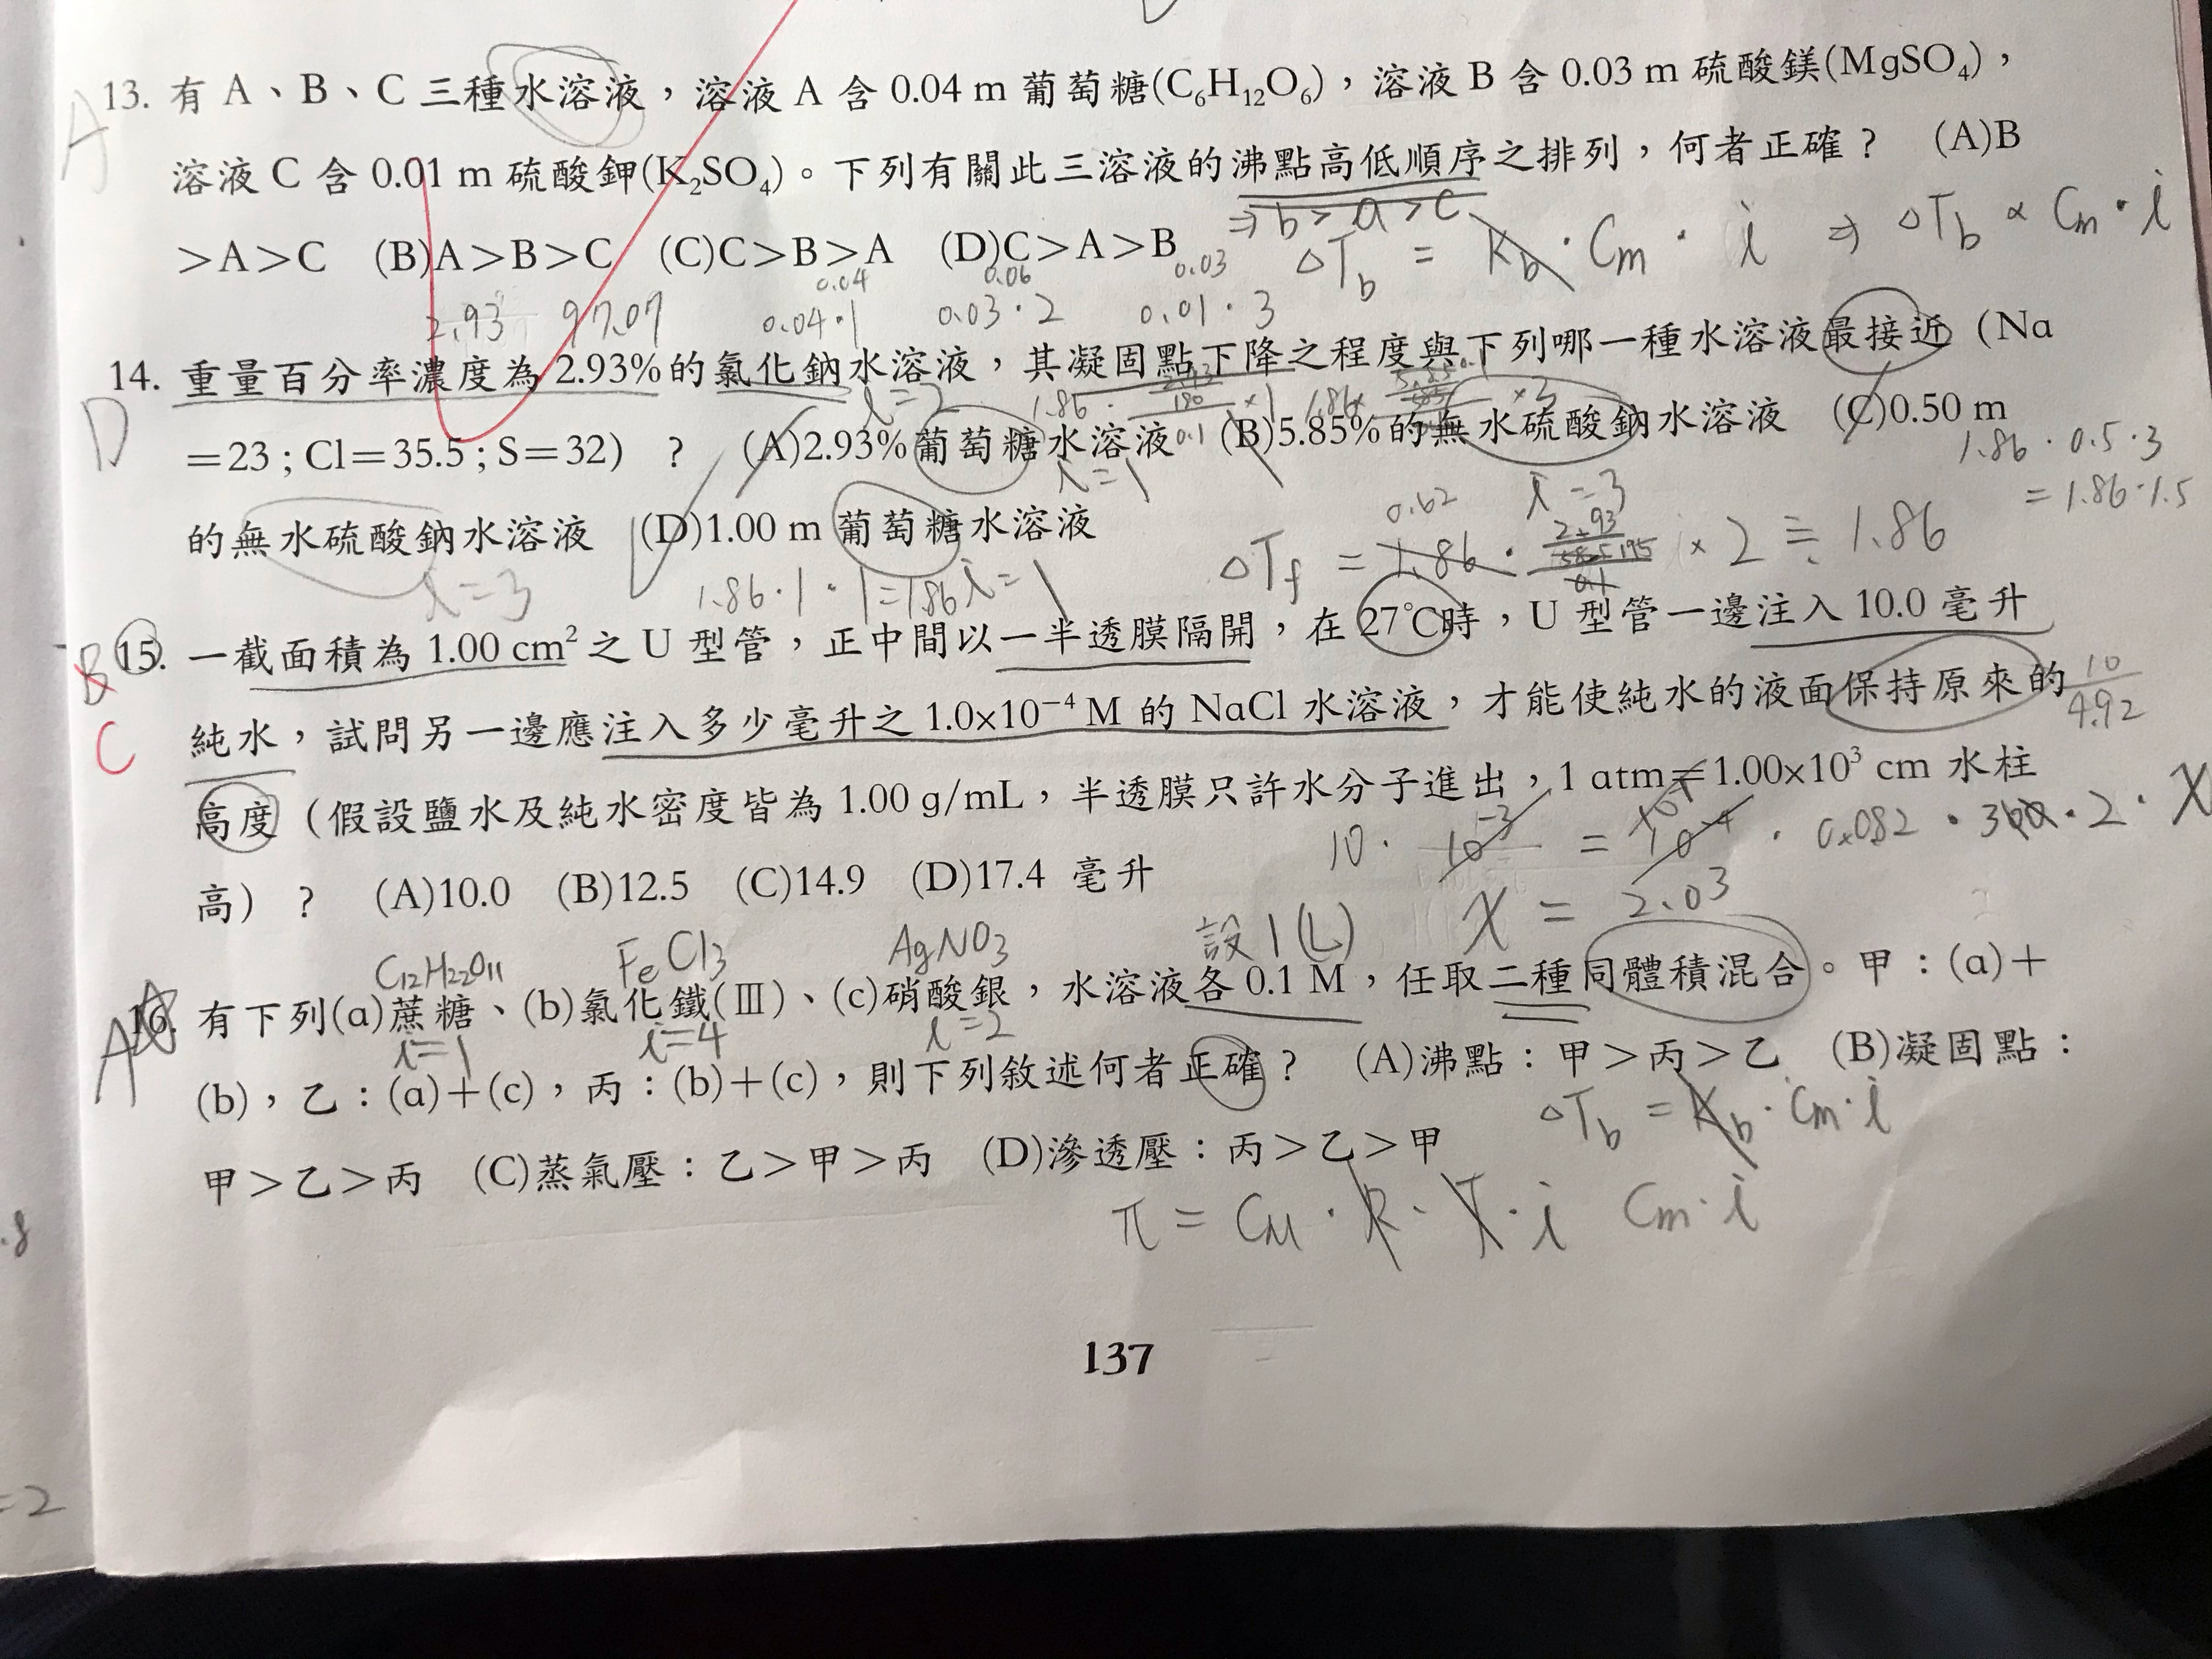 A 13. 有 A、B、C 三種水溶液，溶液 A 含 0.04 m 葡萄糖(C₆H₁₂O₆)，溶液 B 含 0.03 m 硫酸鎂(MgSO₄)，
溶液 C 含 0.01 m 硫酸鉀(K₂SO₄)。下列有關此三溶液的沸點高低順序之排列，何者正確？ (A)B
⇒ b > a > c
>A>C (B)A>B>C (C)C>B>A (D)C>A>B
ΔTb = Kb · Cm · i ⇒ ΔTb ∝ Cm · i
0.04 0.06 0.03
2.93 97.07 0.04·1 0.03·2 0.01·3
D 14. 重量百分率濃度為 2.93%的氯化鈉水溶液，其凝固點下降之程度與下列哪一種水溶液最接近（Na
i=2
=23 ; Cl=35.5 ; S=32） ? (A)2.93%葡萄糖水溶液 (B)5.85%的無水硫酸鈉水溶液 (C)0.50 m
1.86 · 0.5 · 3
= 1.86 · 1.5
i=1 i=3
的無水硫酸鈉水溶液 (D)1.00 m 葡萄糖水溶液
i=3 1.86·1·1=1.86 i=1
ΔTf = 1.86 · 2.93 × 2 ≒ 1.86
B C 15. 一截面積為 1.00 cm² 之 U 型管，正中間以一半透膜隔開，在 27℃時，U 型管一邊注入 10.0 毫升
純水，試問另一邊應注入多少毫升之 1.0×10⁻⁴ M 的 NaCl 水溶液，才能使純水的液面保持原來的
10
4.92
高度（假設鹽水及純水密度皆為 1.00 g/mL，半透膜只許水分子進出，1 atm=1.00×10³ cm 水柱
10 · 10⁻³ = 10⁻⁴ · 0.082 · 300 · 2 · X
高） ? (A)10.0 (B)12.5 (C)14.9 (D)17.4 毫升
X = 2.03
C12H22O11 FeCl3 AgNO3 設 1(L)
A 16. 有下列(a)蔗糖、(b)氯化鐵(Ⅲ)、(c)硝酸銀，水溶液各 0.1 M，任取二種同體積混合。甲：(a)+
i=1 i=4 i=2
(b)，乙：(a)+(c)，丙：(b)+(c)，則下列敘述何者正確？ (A)沸點：甲>丙>乙 (B)凝固點：
ΔTb = Kb · Cm · i
甲>乙>丙 (C)蒸氣壓：乙>甲>丙 (D)滲透壓：丙>乙>甲
π = CM · R · T · i Cm · i
137
.8
=2